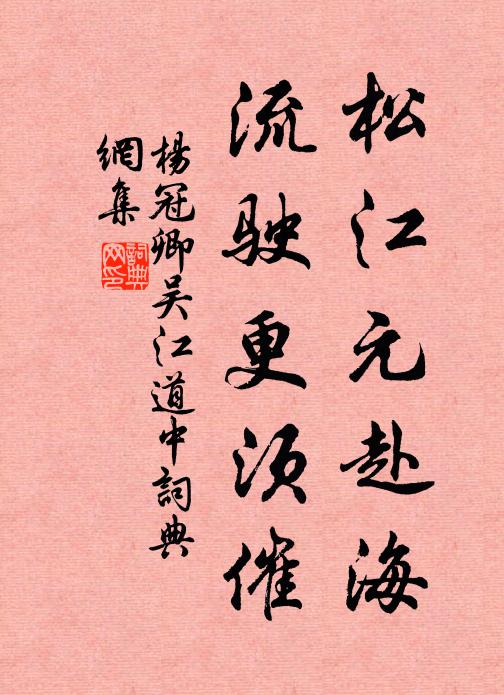 松江元赴海
流駛更須催
楊冠卿吴江道中詞典
網集
詞典
网印